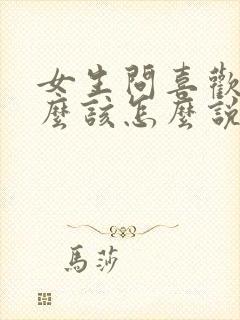 女生問喜歡
麼該怎麼說
馬莎